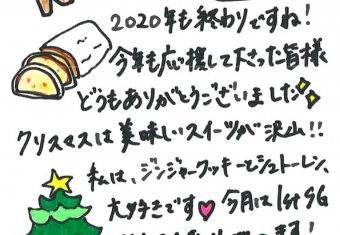 2020年も終わりですね！
今年も応援して下さった皆様
どうもありがとうございました✨
クリスマスは美味しいスイーツが沢山!!
私は、ジンジャークッキーとシュトーレン、
大好きです♥ 今月は1st SG